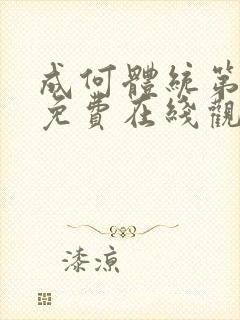 成何體統第
免費在綫觀
漆涼